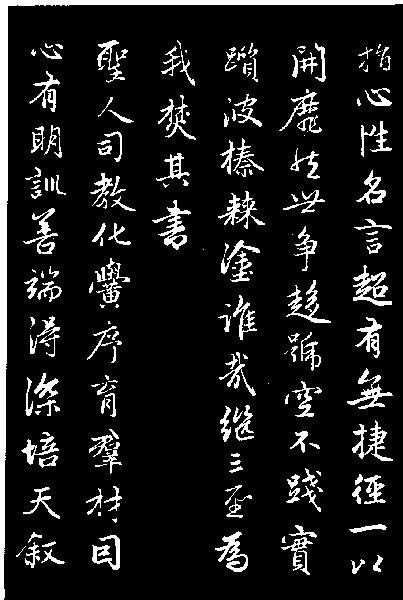 指心性名言超有無捷徑一以
開靡然世争趍號空不踐實
躓彼榛棘塗誰哉繼三聖為
我焚其書
聖人司教化黌序育羣材因
心有明訓善端得深培天叙